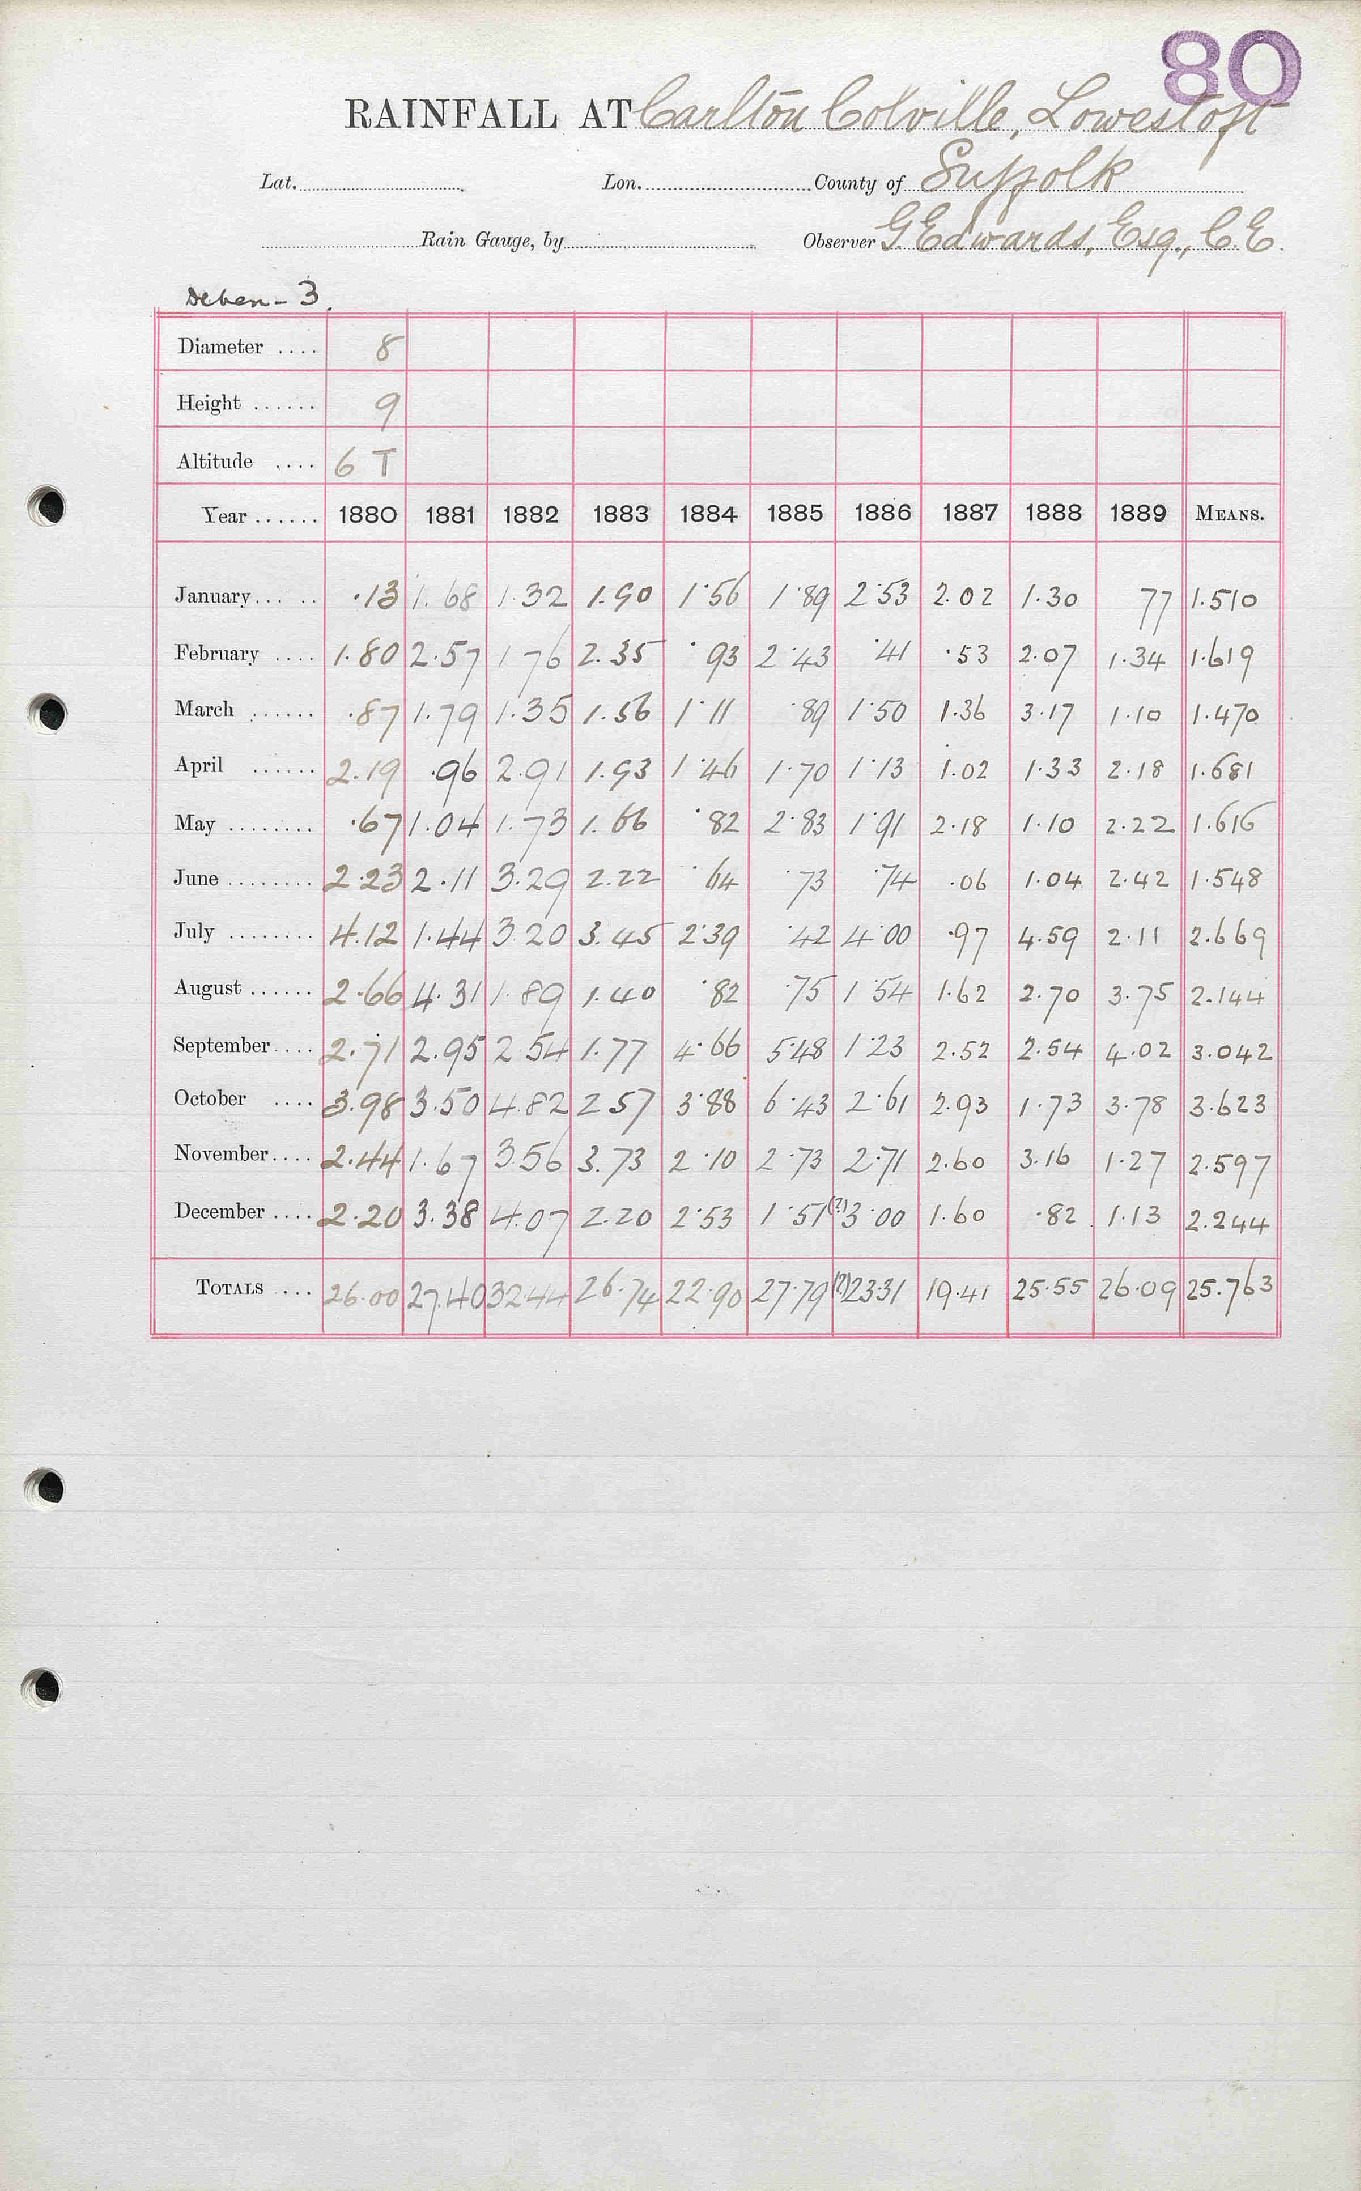 80
RAINFALL AT Carlton Colville, Lowestoft
Lat. Lon. County of Suffolk
Rain Gauge, by Observer G Edwards, Esq., C.E.
Deben - 3.
Diameter .... 8
Height ...... 9
Altitude .... 6 T
Year ...... 1880 1881 1882 1883 1884 1885 1886 1887 1888 1889 MEANS.
January... .. .13 1.68 1.32 1.90 1.56 1.89 2.53 2.02 1.30 77 1.510
February .... 1.80 2.57 1 76 2.35 .93 2.43 .41 .53 2.07 1.34 1.619
March ...... .87 1.79 1.35 1.56 1.11 .89 1.50 1.36 3.17 1.10 1.470
April ...... 2.19 .96 2.91 1.93 1.46 1.70 1.13 1.02 1.33 2.18 1.681
May ........ .67 1.04 1.73 1.66 .82 2.83 1.91 2.18 1.10 2.22 1.616
June ........ 2.23 2.11 3.29 2.22 .64 .73 .74 .06 1.04 2.42 1.548
July ........ 4.12 1.44 3.20 3.45 2.39 .42 4.00 .97 4.59 2.11 2.669
August ...... 2.66 4.31 1.89 1.40 .82 .75 1.54 1.62 2.70 3.75 2.144
September.... 2.71 2.95 2.54 1.77 4.66 5.48 1.23 2.52 2.54 4.02 3.042
October .... 3.98 3.50 4.82 2 57 3.88 6.43 2.61 2.93 1.73 3.78 3.623
November.... 2.44 1.67 3.56 3.73 2.10 2.73 2.71 2.60 3.16 1.27 2.597
December .... 2.20 3.38 4.07 2.20 2.53 1.51 (?)3.00 1.60 .82 1.13 2.244
TOTALS .... 26.00 27.40 32.44 26.74 22.90 27.79 (?)23.31 19.41 25.55 26.09 25.763